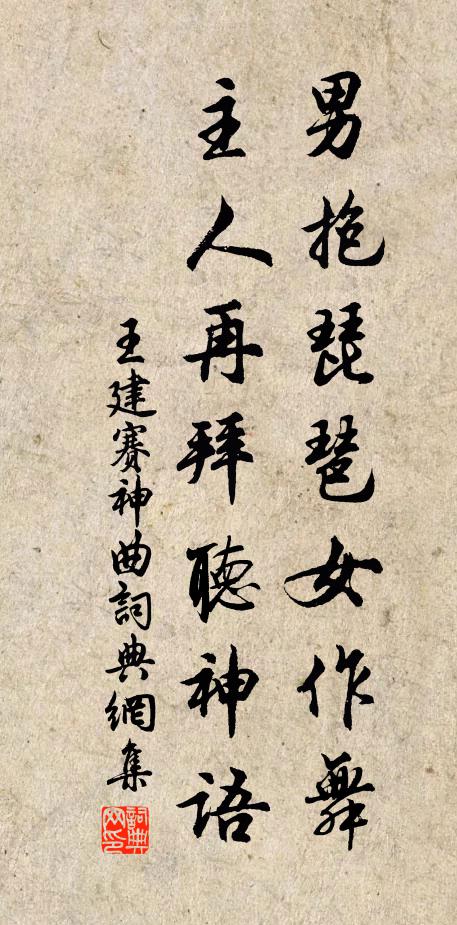 男抱琵琶女作舞
主人再拜聽神語
王建賽神曲詞典網集
詞典
网印